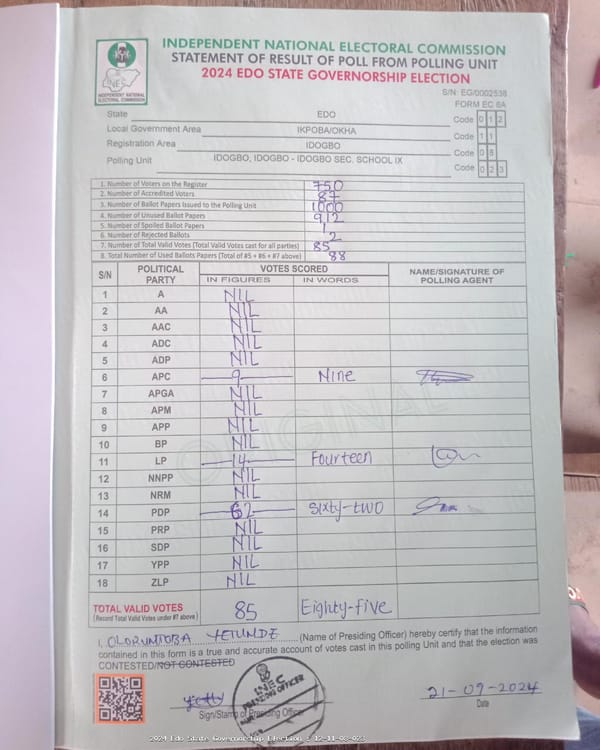 INDEPENDENT NATIONAL ELECTORAL COMMISSION
STATEMENT OF RESULT OF POLL FROM POLLING UNIT
2024 EDO STATE GOVERNORSHIP ELECTION
INEC
INDEPENDENT NATIONAL ELECTORAL COMMISSION
S/N: EG/0002538
FORM EC 8A
State EDO Code 0 1 2
Local Government Area IKPOBA/OKHA Code 1 1
Registration Area IDOGBO Code 0 8
Polling Unit IDOGBO, IDOGBO - IDOGBO SEC. SCHOOL IX Code 0 2 3
1. Number of Voters on the Register 750
2. Number of Accredited Voters 87
3. Number of Ballot Papers Issued to the Polling Unit 1000
4. Number of Unused Ballot Papers 912
5. Number of Spoiled Ballot Papers 1
6. Number of Rejected Ballots 2
7. Number of Total Valid Votes (Total Valid Votes cast for all parties) 85
8. Total Number of Used Ballots Papers (Total of #5 + #6 + #7 above) 88
S/N POLITICAL PARTY VOTES SCORED NAME/SIGNATURE OF POLLING AGENT
IN FIGURES IN WORDS
1 A NIL
2 AA NIL
3 AAC NIL
4 ADC NIL
5 ADP NIL
6 APC 9 Nine
7 APGA NIL
8 APM NIL
9 APP NIL
10 BP NIL
11 LP 14 Fourteen
12 NNPP NIL
13 NRM NIL
14 PDP 62 Sixty-two
15 PRP NIL
16 SDP NIL
17 YPP NIL
18 ZLP NIL
ORIGINAL
TOTAL VALID VOTES 85 Eighty-five
(Record Total Valid Votes under #7 above)
I, OLORUNTOBA YETUNDE (Name of Presiding Officer) hereby certify that the information
contained in this form is a true and accurate account of votes cast in this polling Unit and that the election was
CONTESTED/NOT CONTESTED
INEC
PRESIDING OFFICER
21-09-2024
Sign/Stamp of Presiding Officer Date
2024 Edo State Governorship Election - 12-11-08-023